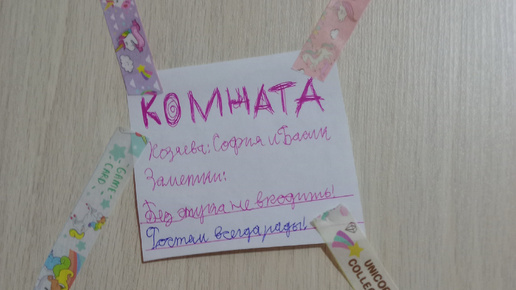 КОМНАТА
Хозяева: София и Басик
Заметки:
Без стука не входить!
Гостям всегда рады!
GAME
CARD
UNICORN
COLLEC